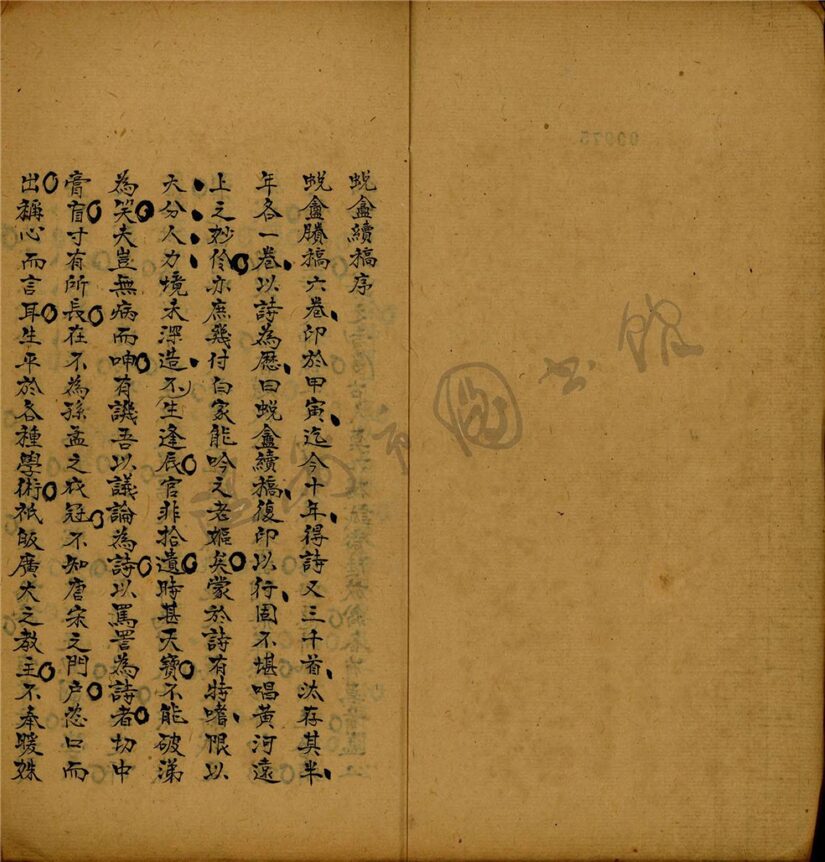 蜕盦續稿序
蜕盦賸稿六卷印於甲寅迄今十年得詩又三千首汰存其半
年各一卷以詩為歷曰蜕盦續稿復印以行固不堪唱黄河遠
上之妙伶亦庶幾付白家能吟之老嫗矣蒙於詩有特嗜限以
天分人力境未深造不生逢辰官非拾遺時甚天寶不能破涕
為笑夫豈無病而呻有譏吾以議論為詩以罵詈為詩者切中
膏肓寸有所長在不為孫孟之衣冠不知唐宋之門户恣口而
出稱心而言耳生平於各種學術祇皈廣大之教主不奉暖姝
市圖書館